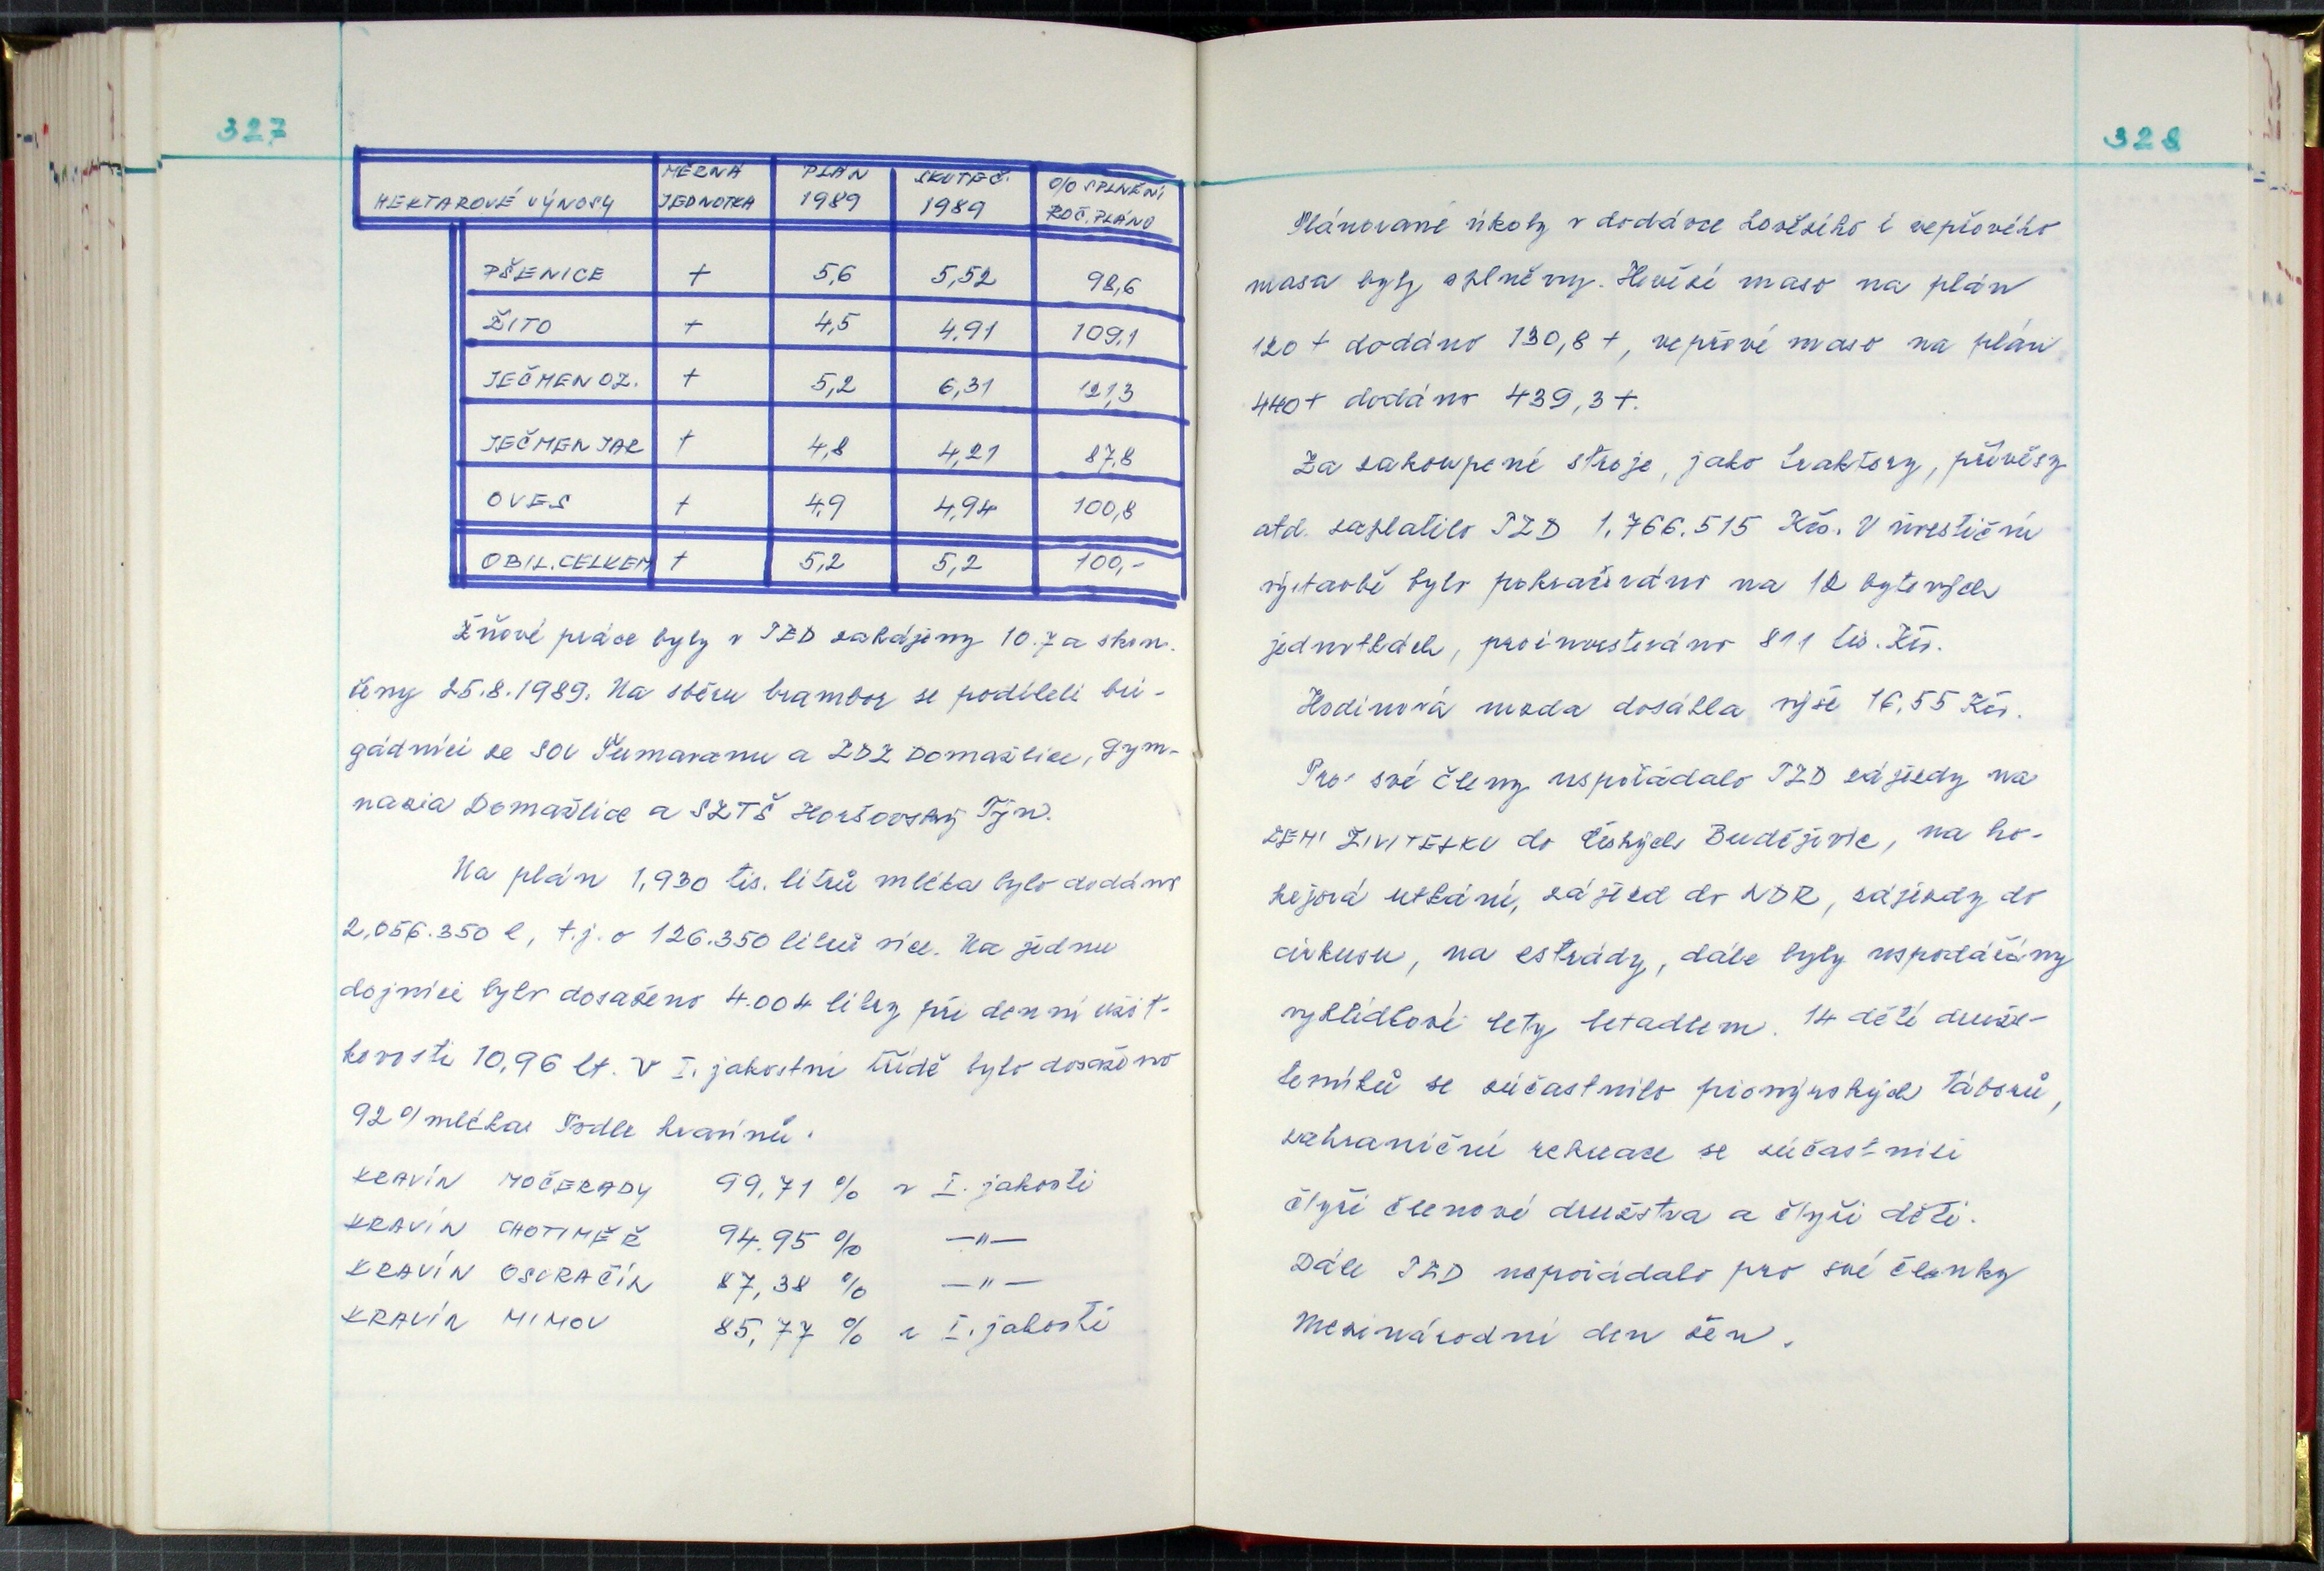 327
HEKTAROVÉ VÝNOSY MĚRNÁ JEDNOTKA PLÁN 1989 SKUTEČ. 1989 % SPLNĚNÍ ROČ. PLÁNU
PŠENICE t 5,6 5,52 98,6
ŽITO t 4,5 4,91 109,1
JEČMEN OZ. t 5,2 6,31 121,3
JEČMEN JAR t 4,8 4,21 87,8
OVES t 4,9 4,94 100,8
OBIL. CELKEM t 5,2 5,2 100,-
Žňové práce byly v JZD zahájeny 10.7 a skon-
čeny 25.8.1989. Na sběru brambor se podíleli bri-
gádníci ze SOU Šumavanu a ZDZ Domažlice, Gym-
nazia Domažlice a SZTŠ Horšovský Týn.
Na plán 1,930 tis. litrů mléka bylo dodáno
2,056.350 l, t.j. o 126.350 litrů více. Na jednu
dojnici bylo dosaženo 4.004 litry při denní užit-
kovosti 10,96 lt. V I. jakostní třídě bylo dosaženo
92 % mléka. Podle kravínů.
KRAVÍN MOČERADY 99,71 % v I. jakosti
KRAVÍN CHOTIMĚŘ 94.95 % —"—
KRAVÍN OSVRAČÍN 87,38 % —"—
KRAVÍN MIMOV 85,77 % v I. jakosti
328
Plánované úkoly v dodávce hovězího i vepřového
masa byly splněny. Hovězí maso na plán
120 t dodáno 130,8 t, vepřové maso na plán
440 t dodáno 439,3 t.
Za zakoupené stroje, jako traktory, přívěsy
atd. zaplatilo JZD 1.766.515 Kčs. V investiční
výstavbě bylo pokračováno na 12 bytových
jednotkách, proinvestováno 811 tis. Kčs.
Hodinová mzda dosáhla výše 16,55 Kčs.
Pro své členy uspořádalo JZD zájezdy na
ZEMI ŽIVITELKU do Českých Budějovic, na ho-
kejová utkání, zájezd do NDR, zájezdy do
cirkusu, na estrády, dále byly uspořádány
vyhlídkové lety letadlem. 14 dětí druž-
stevníků se zúčastnilo pionýrských táborů,
zahraniční rekreace se zúčastnili
čtyři členové družstva a čtyři děti.
Dále JZD uspořádalo pro své členky
Mezinárodní den žen.